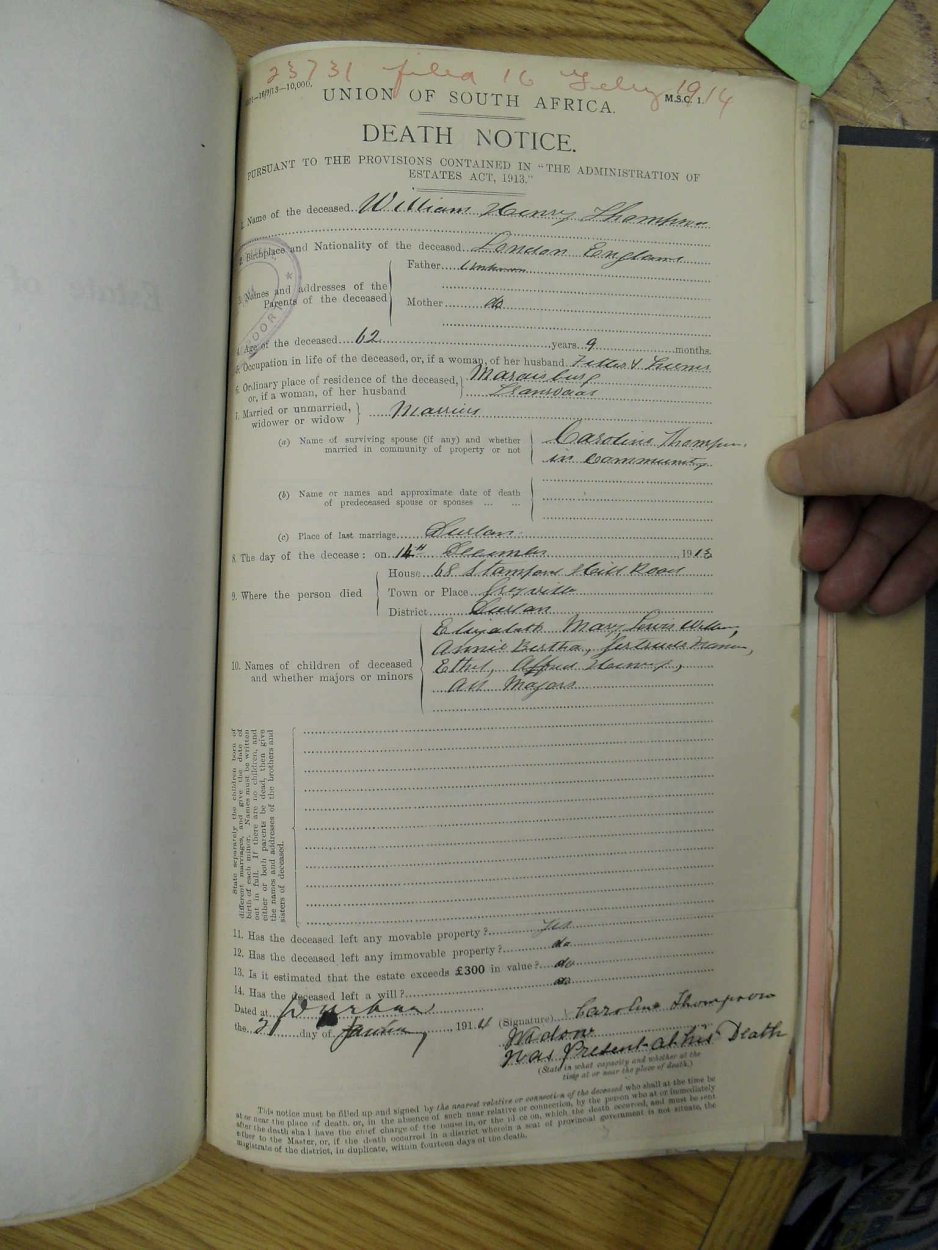 23731 filed 16 Feby 1914
M.S.C. 1.
UNION OF SOUTH AFRICA.
DEATH NOTICE.
PURSUANT TO THE PROVISIONS CONTAINED IN "THE ADMINISTRATION OF
ESTATES ACT, 1913."
1. Name of the deceased William Henry Thompson
2. Birthplace and Nationality of the deceased London England
3. Names and addresses of the Parents of the deceased
Father Unknown
Mother do
4. Age of the deceased 62 years 9 months.
5. Occupation in life of the deceased, or, if a woman, of her husband Fitter & Turner
6. Ordinary place of residence of the deceased, Maraisburg
or, if a woman, of her husband Transvaal
7. Married or unmarried, widower or widow Married
(a) Name of surviving spouse (if any) and whether Caroline Thompson
married in community of property or not in Community
(b) Name or names and approximate date of death
of predeceased spouse or spouses ... ...
(c) Place of last marriage Durban
8. The day of the decease: on 14th December 1913
9. Where the person died
House 68 Stamford Hill Road
Town or Place Greyville
District Durban
10. Names of children of deceased
and whether majors or minors
Elizabeth Mary Lewis William,
Annie Bertha, Gertrude
Ethel, Alfred Henry,
All Majors
State separately the children born of
different marriages, and give the date of
birth of each minor. Names must be written
out in full. If there are no children, and
either or both parents be dead, then give
the names and addresses of the brothers and
sisters of deceased.
11. Has the deceased left any movable property? Yes
12. Has the deceased left any immovable property? do
13. Is it estimated that the estate exceeds £300 in value? do
14. Has the deceased left a will? do
Dated at Durban
the 2 day of January 1914
(Signature) Caroline Thompson
Widow
Was Present at his Death
(State in what capacity and whether at the
time at or near the place of death.)
This notice must be filled up and signed by the nearest relative or connection of the deceased who shall at the time be
at or near the place of death, or, in the absence of such near relative or connection, by the person who at or immediately
after the death shall have the chief charge of the house in, or the place on, which, the death occurred, and must be sent
either to the Master, or, if the death occurred in a district wherein a seat of provincial government is not situate, the
magistrate of the district, in duplicate, within fourteen days of the death.